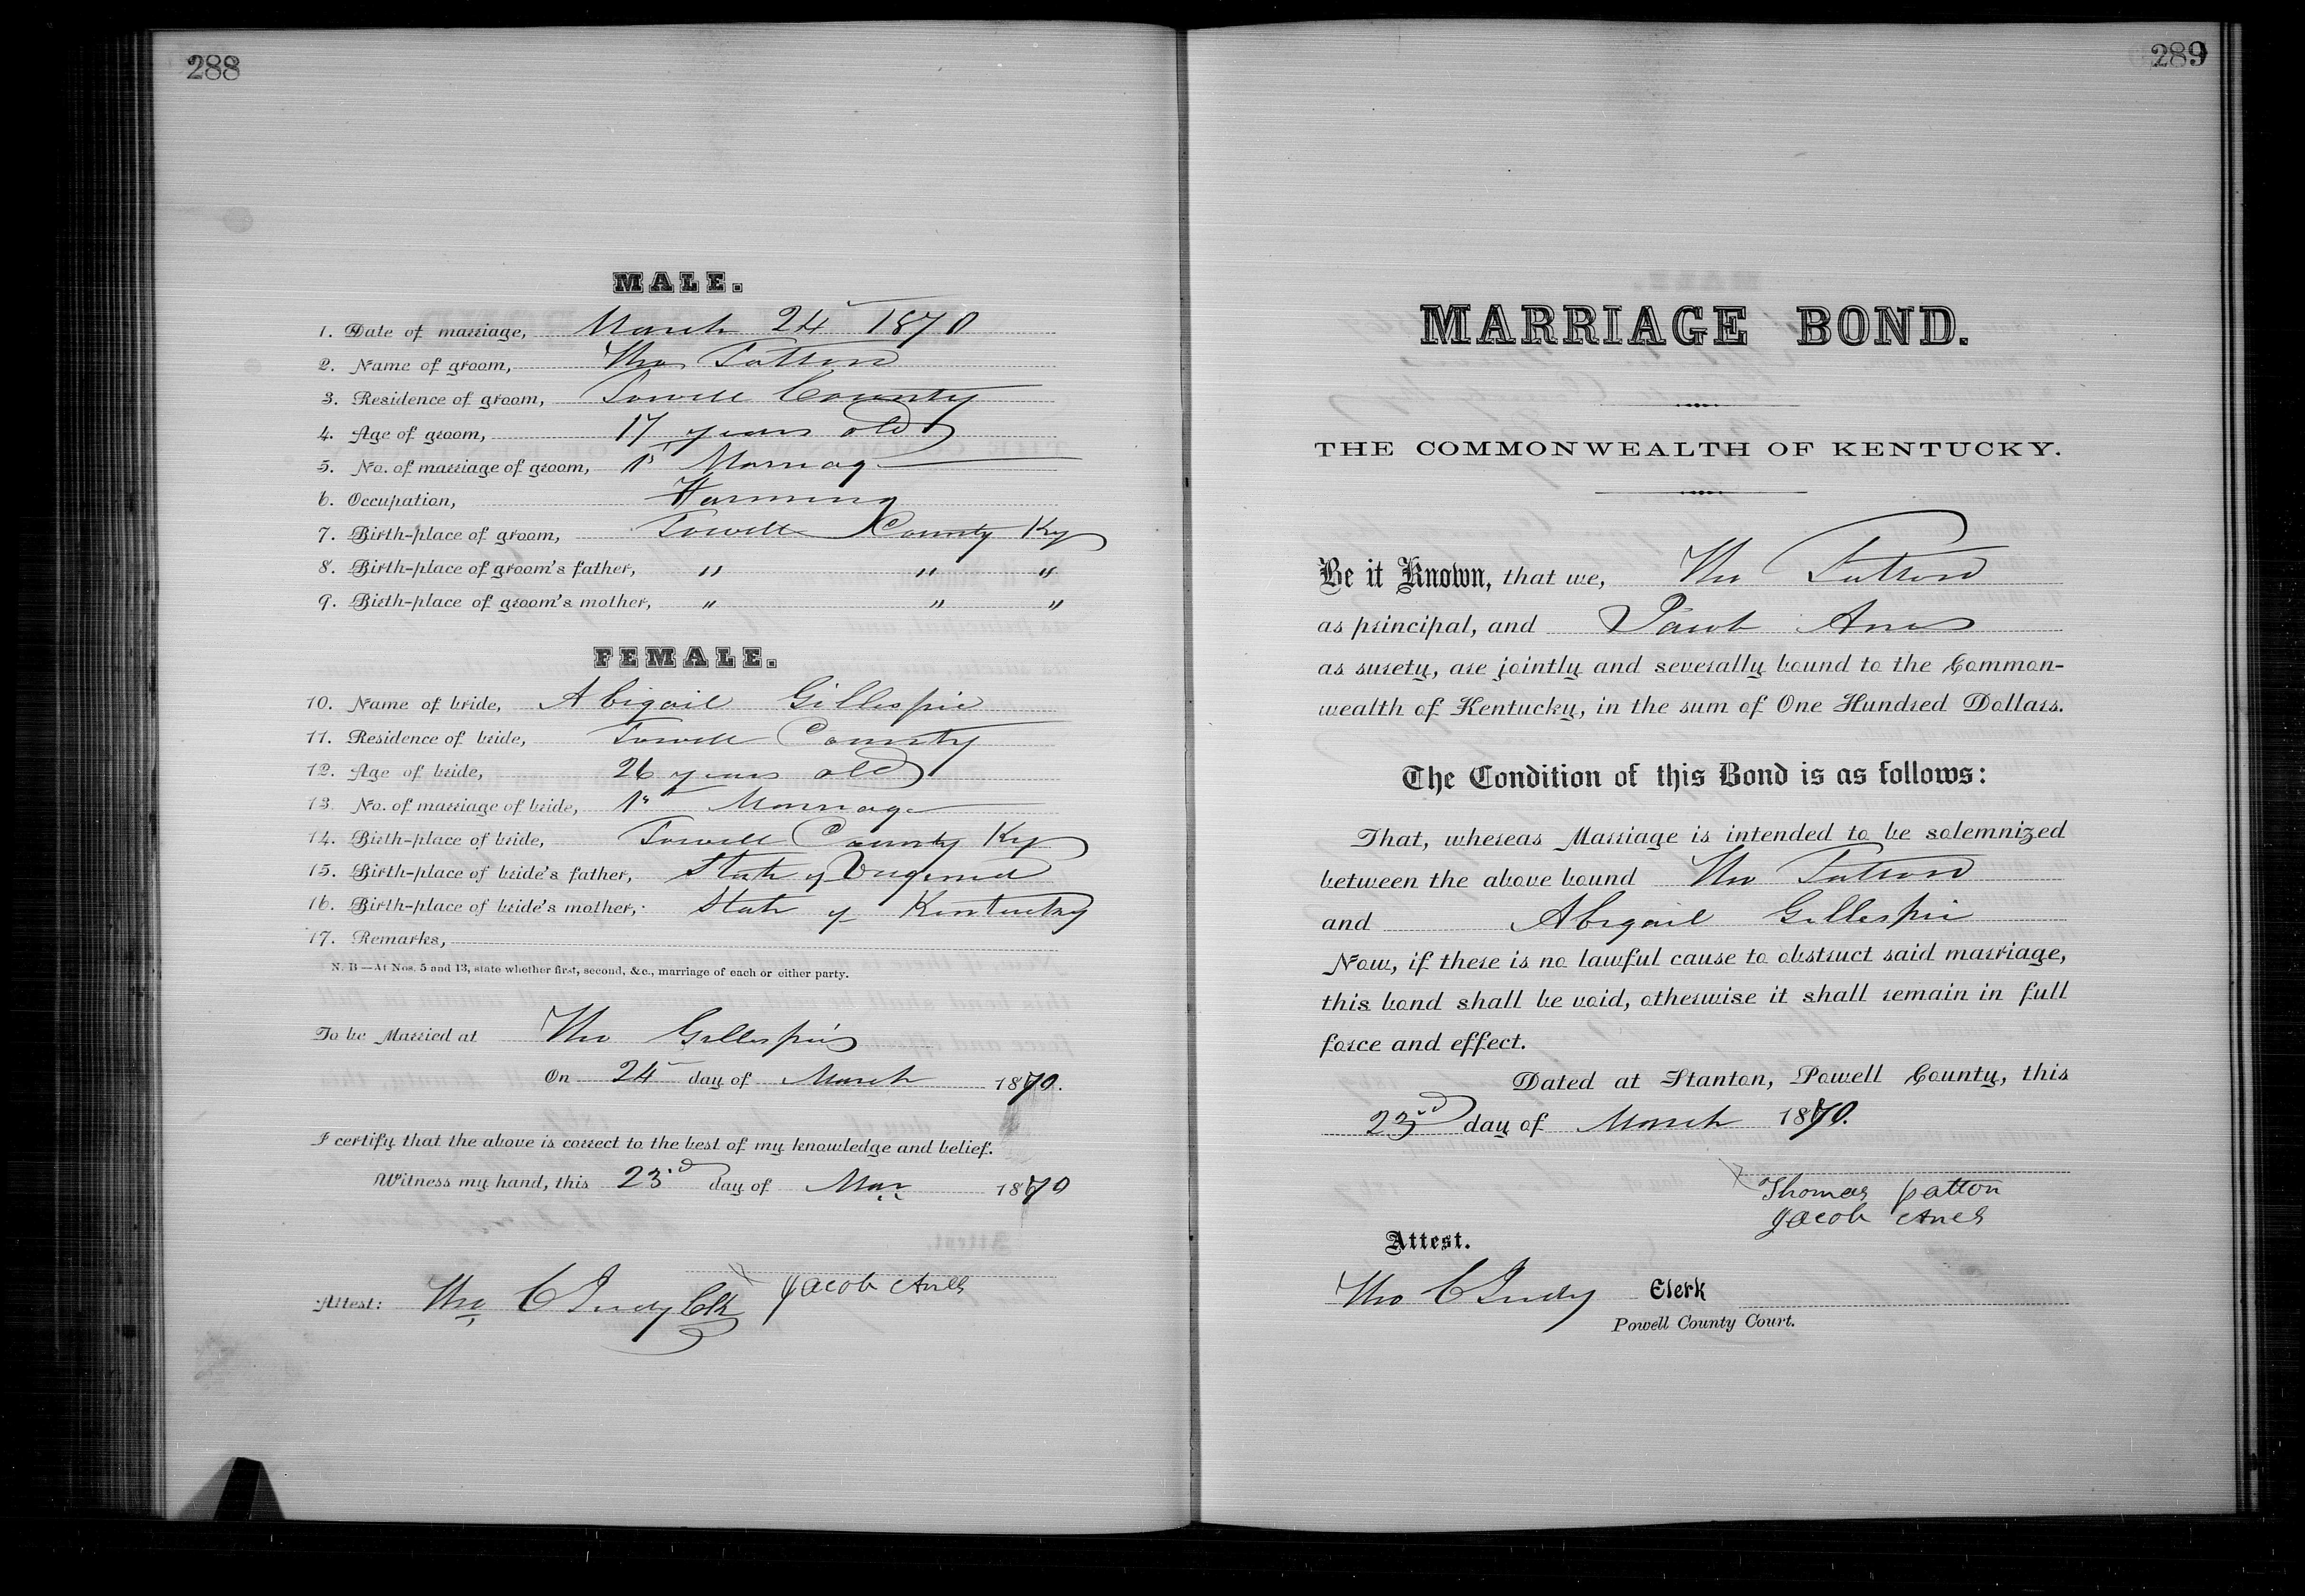 288
MALE.
1. Date of marriage, March 24 1870
2. Name of groom, Tho Patton
3. Residence of groom, Powell County
4. Age of groom, 17 years old
5. No. of marriage of groom, 1st Marriage
6. Occupation, Farming
7. Birth-place of groom, Powell County Ky
8. Birth-place of groom's father, " " "
9. Birth-place of groom's mother, " " "
FEMALE.
10. Name of bride, Abigail Gillespie
11. Residence of bride, Powell County
12. Age of bride, 26 years old
13. No. of marriage of bride, 1st Marriage
14. Birth-place of bride, Powell County Ky
15. Birth-place of bride's father, State of Virginia
16. Birth-place of bride's mother, State of Kentucky
17. Remarks,
N. B—At Nos. 5 and 13, state whether first, second, &c., marriage of each or either party.
To be Married at Tho Gillespie's
On 24 day of March 1870.
I certify that the above is correct to the best of my knowledge and belief.
Witness my hand, this 23rd day of Mar 1870
Jacob Anes
Attest: Tho C Judy Clk
289
MARRIAGE BOND.
THE COMMONWEALTH OF KENTUCKY.
Be it Known, that we, Tho Patton
as principal, and Jacob Anes
as surety, are jointly and severally bound to the Common-
wealth of Kentucky, in the sum of One Hundred Dollars.
The Condition of this Bond is as follows:
That, whereas Marriage is intended to be solemnized
between the above bound Tho Patton
and Abigail Gillespie
Now, if there is no lawful cause to obstruct said marriage,
this bond shall be void, otherwise it shall remain in full
force and effect.
Dated at Stanton, Powell County, this
23rd day of March 1870.
Thomas patton
Jacob Anes
Attest.
Tho C Judy Clerk
Powell County Court.